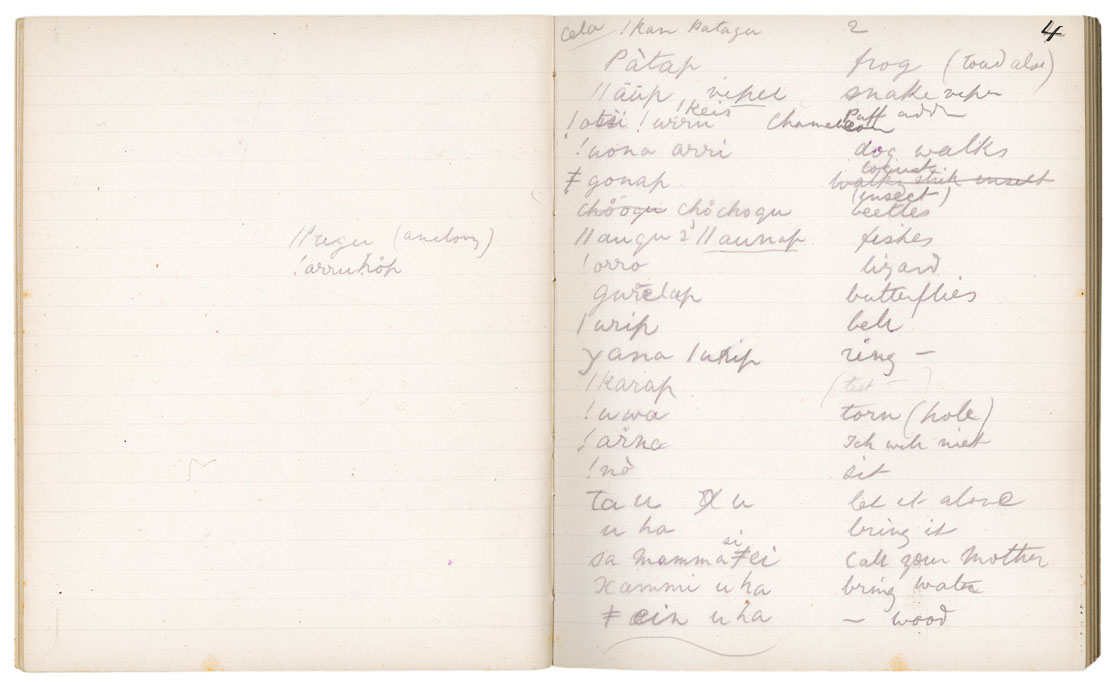 (anelong)
!arrukōp
!kan Patagu 2 4
Pàtap frog (toad also)
//āūp viper snake viper
!keis Puff adder
!urru Chameleon
!uona arri dog walks
locust
ǂgonap walks stick insect
(insect)
chǒchogu beetles
//augu 2 //aunap fishes
!orro lizard
butterflies
/urip belt
yana /urip ring —
!karap (test —)
!uwa torn (hole)
!ařna Ich will niet
!nò sit
Ta u X u let it alone
u ha bring it
si
sa mamma ǂei call your mother
xammi u ha bring water
ǂ ein u ha — wood